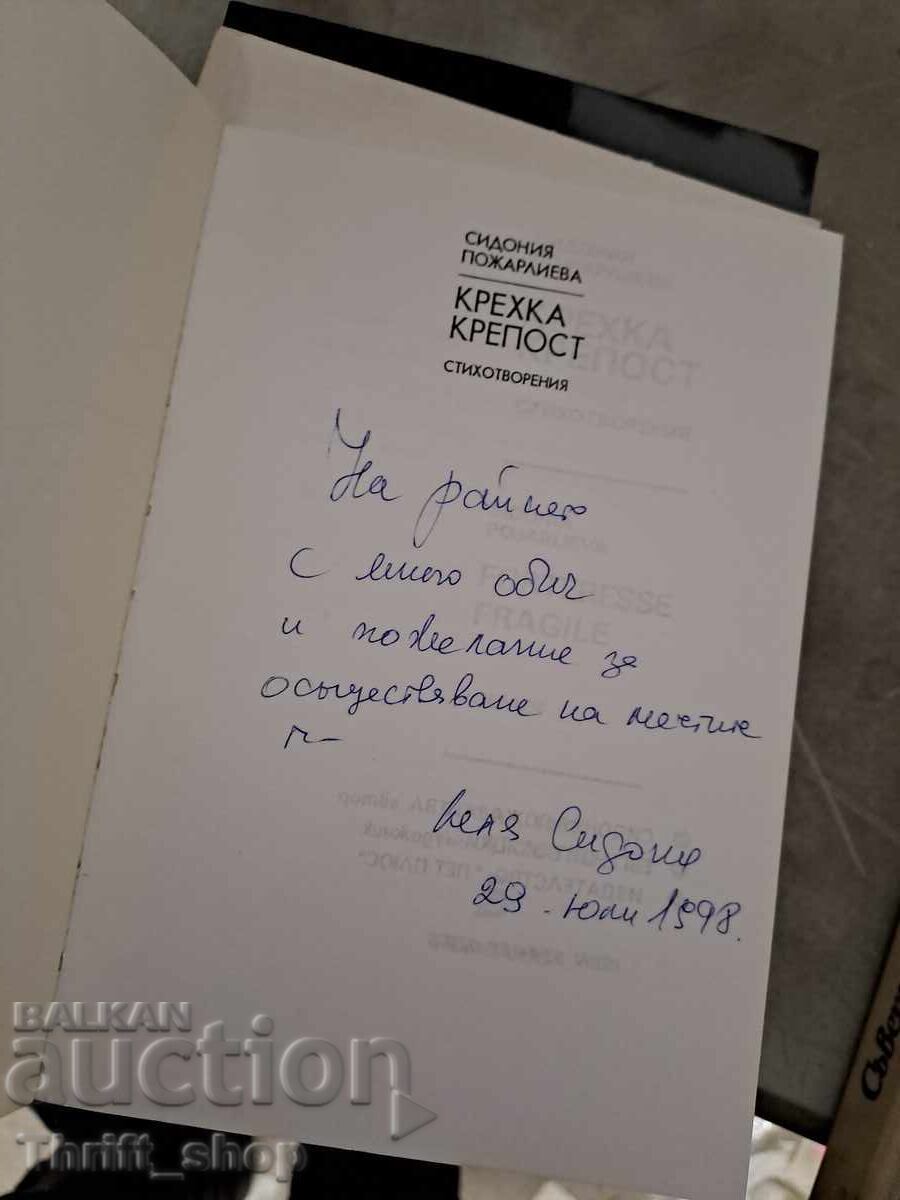 СИДОНИЯ
ПОЖАРЛИЕВА
КРЕХКА
КРЕПОСТ
СТИХОТВОРЕНИЯ
На
с много обич
и пожелание за
осъществяване на мечтите
Сидония
29. Юли 1998.
FRAGILE
BALKAN
auction
Thrift_shop